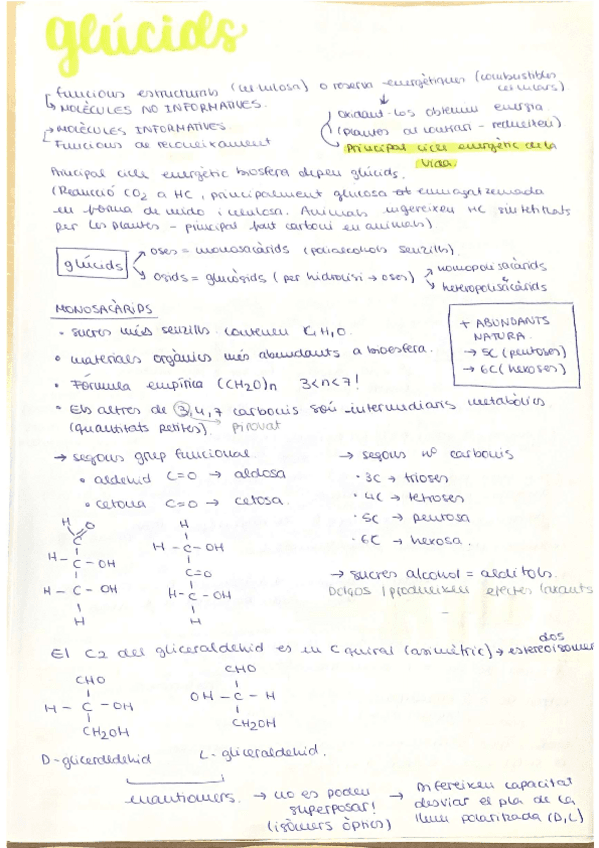 glúcids
funcions estructurals (cel·lulosa) o reserva energètiques (combustibles
cel·lulars)
→ MOLÈCULES NO INFORMATIVES.
→ MOLÈCULES INFORMATIVES
Funcions de reconeixement
Oxidant-los obtenim energia
(plantes al contrari - redueixen)
Principal cicle energètic de la
vida.
Principal cicle energètic biosfera depèn glúcids.
(Reducció CO2 a HC, principalment glucosa emmagatzemada
en forma de midó i cel·lulosa. Animals ingereixen HC sintetitzats
per les plantes - principal font carboni en animals)
glúcids
oses = monosacàrids (polialcohols senzills).
osids = glucòsids (per hidròlisi → oses)
homopolisacàrids
heteropolisacàrids
MONOSACÀRIDS
• sucres més senzills. contenen C, H, O.
• materials orgànics més abundants a bioesfera.
• Fórmula empírica (CH2O)n 3<n<7!
• Els altres de 3,4,7 carbonis són intermediaris metabòlics
(quantitats petites). pirovat
+ ABUNDANTS
NATURA.
→ 5C (pentoses)
→ 6C (hexoses)
→ segons grup funcional
• aldehid C=O → aldosa
• cetona C=O → cetosa.
→ segons nº carbonis
• 3C → trioses
• 4C → tetroses
• 5C → pentosa
• 6C → hexosa.
H O
C
H - C - OH
H - C - OH
H
H
H - C - OH
C=O
H - C - OH
H
→ sucres alcohol = alditols.
Dolços i produeixen efectes laxants
El C2 del gliceraldehid es un C quiral (asimètric) → dos
estereoisòmers
CHO
H - C - OH
CH2OH
D-gliceraldehid
CHO
OH - C - H
CH2OH
L-gliceraldehid.
enantiomers. → no es poden
superposar!
(isòmers òptics)
→ Difereixen capacitat
desviar el pla de la
llum polaritzada (D,L)